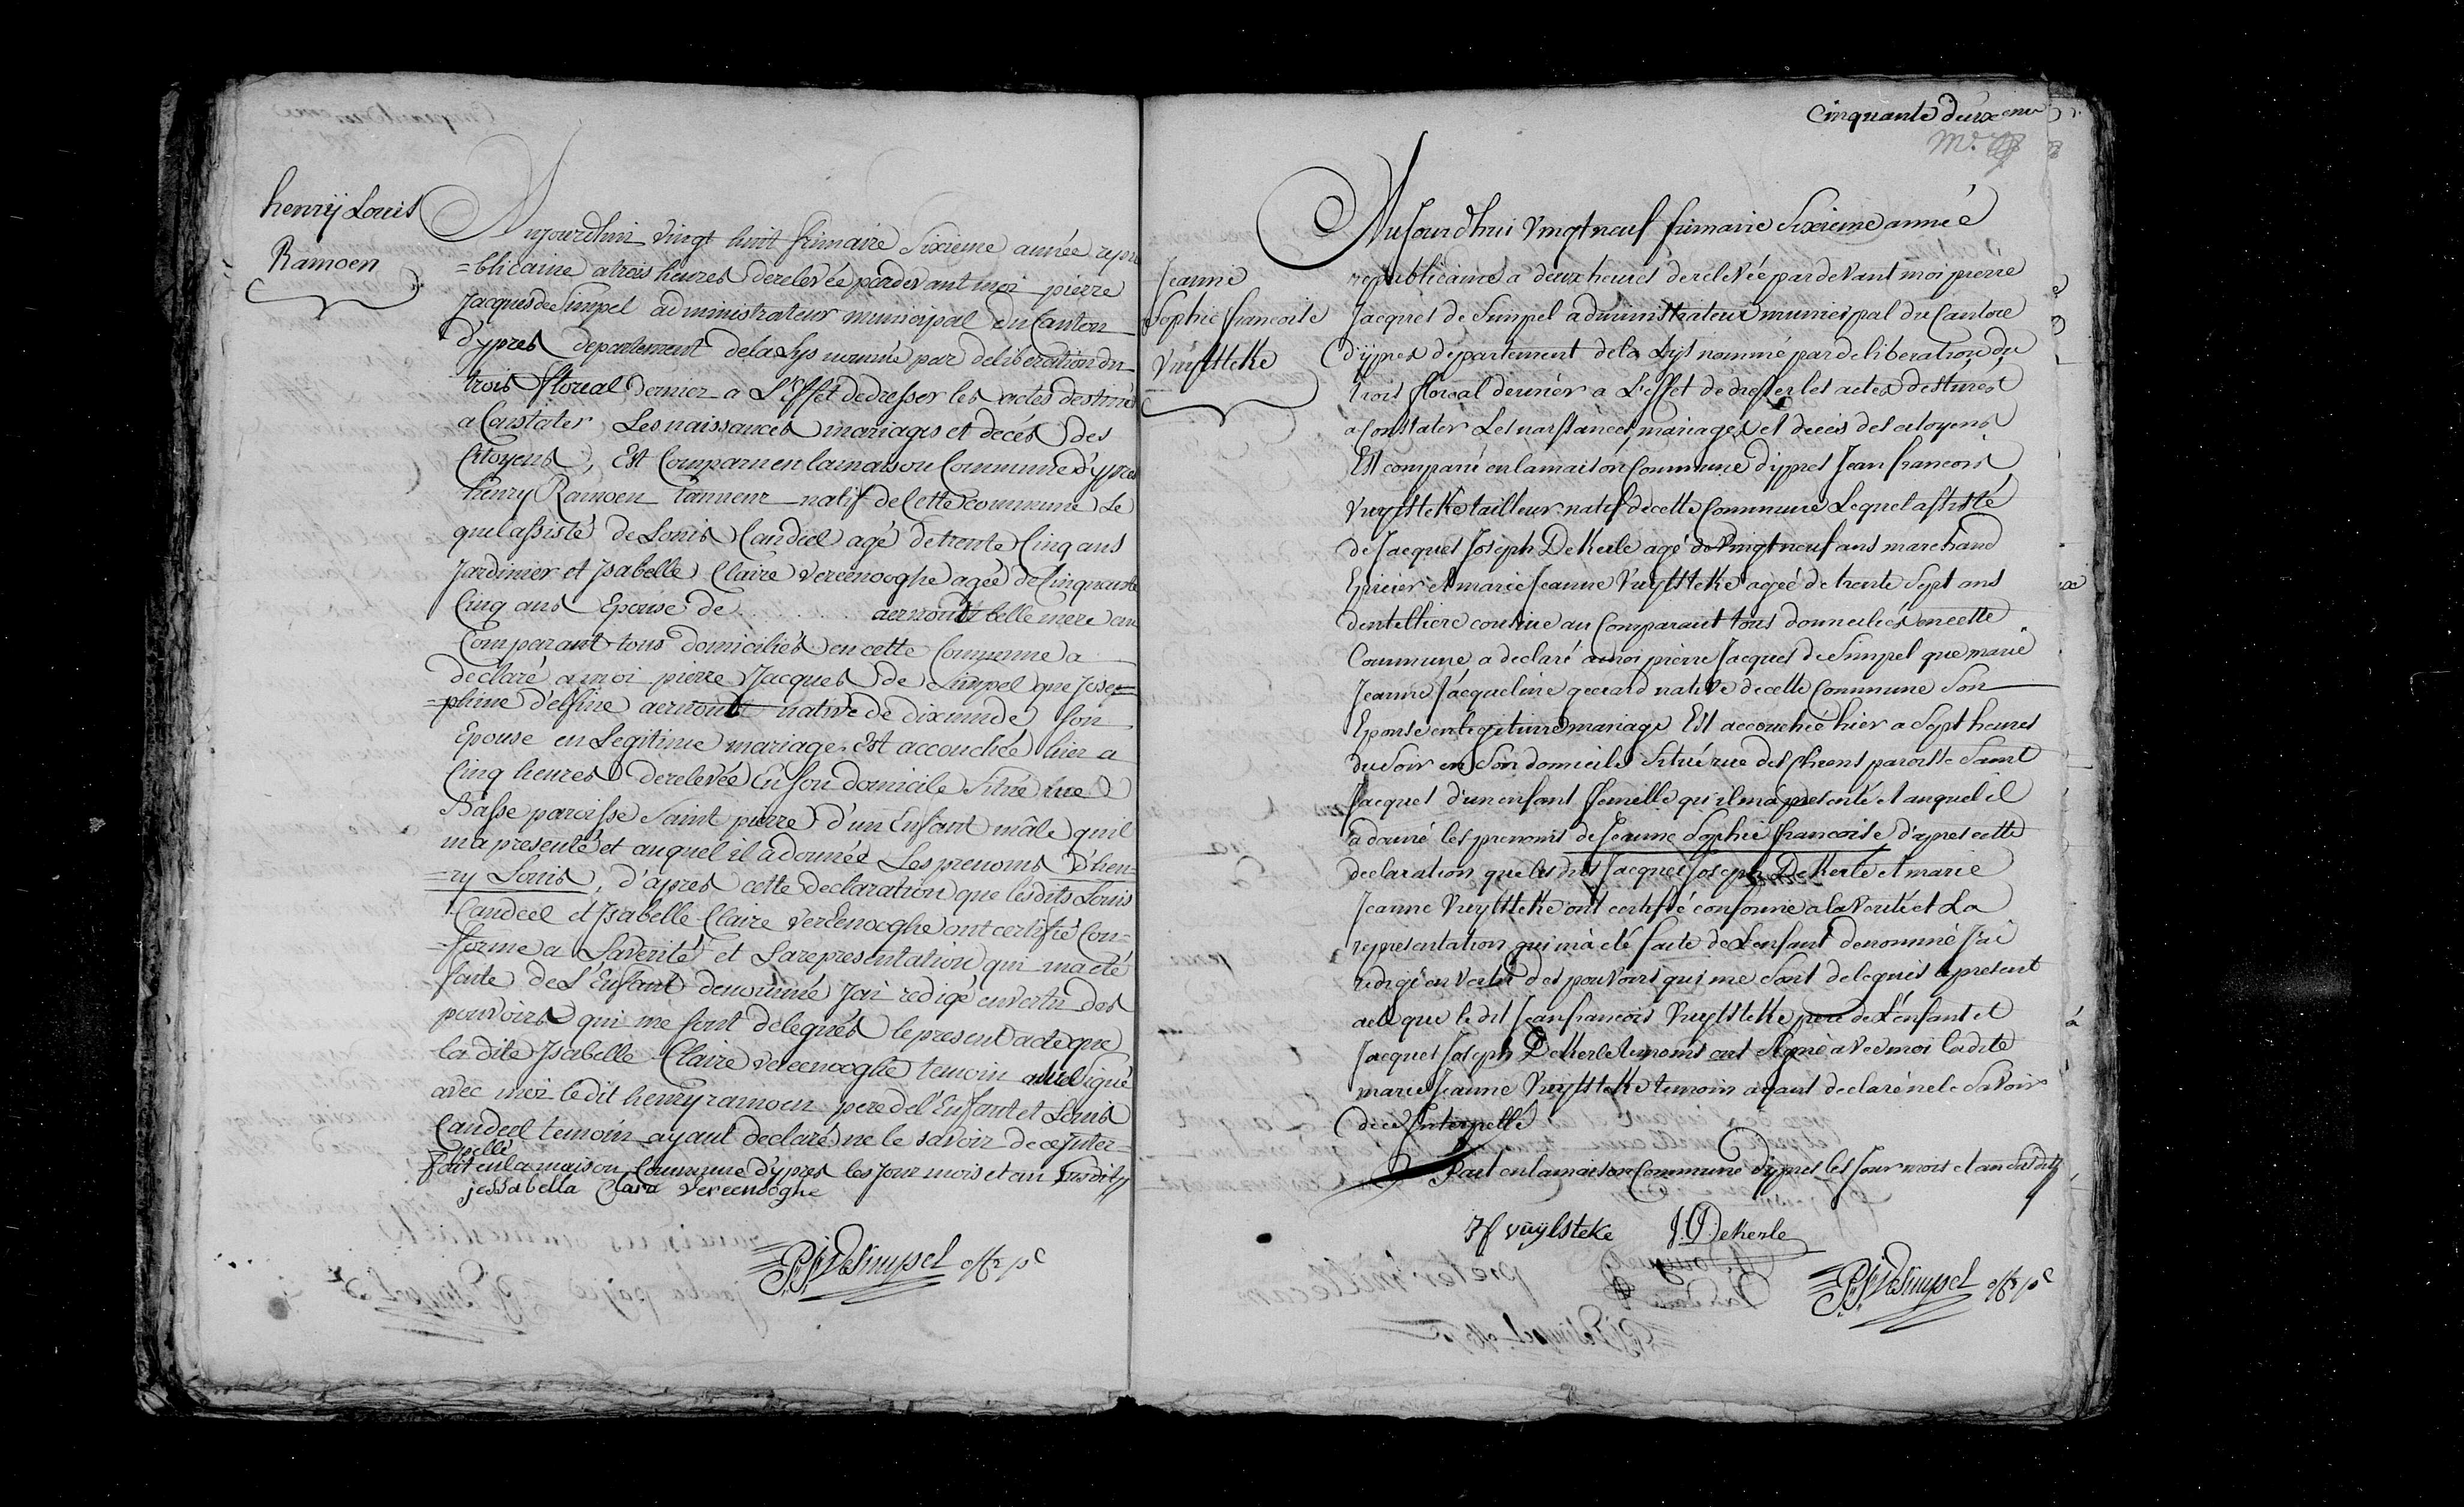 henry Louis
Ramoen
Aujourdhui vingt huit frimaire Sixieme année repu
=blicaine a trois heures de relevée pardevant moi pierre
Jacques de Simpel administrateur municipal du Canton
d'ypres departement de la Lys nommé par deliberation du
trois floreal dernier a L'Effet de dresser les actes destinés
a Constater Les naissances mariages et decés des
Citoyens, Est Comparu en la maison Commune d'ypres
henry Ramoen tanneur natif de Cette commune Le
quel assisté de Louis Candeel agé de trente Cinq ans
Jardinier et Isabelle Claire vereenooghe agée de Cinquante
Cinq ans Epouse de . . . . . . aernoudt belle mere au
Comparant tous domiciliés en cette Commune a
declaré a moi pierre Jacques de Simpel que Jose=
=phine delfine aernoudt native de dixmude son
Epouse en Legitime mariage Est accouchée hier a
Cinq heures de relevée En son domicile Situé rue
Basse paroisse Saint pierre d'un Enfant mâle qu'il
m'a presenté et auquel il a donnée Les prenoms d'hen=
=ry Louis, d'apres cette declaration que lesdits Louis
Candeel et Isabelle Claire vereenooghe ont certifié Con=
=forme a La verité et La representation qui m'a été
faite de L'Enfant denommé Jai redigé en vertu des
pouvoirs qui me sont delegués le present acte que
la dite Isabelle Claire vereenooghe temoin a signé
avec moi le dit henry ramoen pere de l'Enfant et Louis
Candeel temoin ayant declaré ne le savoir de ce Inter=
=pellé
fait en la maison Commune d'ypres les Jour mois et an susdit
jessabella Clara vereenooghe
P.J. DeSimpel off. p.c
Cinquante deuxieme
Jeanne
Sophie francoise
Vuylsteke
Aujourdhui vingt neuf frimaire Sixieme année
republicaine a deux heures de relevée par devant moi pierre
Jacques de Simpel administrateur municipal du Canton
d'ypres departement de la Lys nommé par deliberation du
trois floreal dernier a L'effet de dresser les actes destinés
a Constater Les naissances, mariages et decés des citoyens
Est comparu en la maison Commune d'ypres Jean francois
Vuylsteke tailleur natif de cette Commune Lequel assisté
de Jacques Joseph DeKerle agé de vingt neuf ans marchand
Epicier et marie Jeanne Vuylsteke agée de trente Sept ans
dentelliere cousine au Comparant tous domiciliés en cette
Commune, a declaré a moi pierre Jacques de Simpel que marie
Jeanne Jacqueline geerard native de cette Commune Son
Epouse en legitime mariage Est accouchée hier a Sept heures
du Soir en Son domicile Situé rue des Chiens paroisse Saint
Jacques d'un enfant femelle qu'il m'a presenté et auquel il
a donné les prenoms de Jeanne Sophie francoise d'apres cette
declaration que les dits Jacques Joseph DeKerle et marie
Jeanne Vuylsteke ont certifié conforme a la verité et La
representation qui m'a été faite de L'enfant denommé J'ai
redigé en vertu des pouvoirs qui me sont delegués le present
acte que le dit Jean francois Vuylsteke pere de L'enfant et
Jacques Joseph DeKerle temoins ont signé avec moi ladite
marie Jeanne Vuylsteke temoin ayant declaré ne le Savoir
de ce Interpellé
Fait en la maison Commune d'ypres les Jour mois et an susdit
Jf vuÿlsteke J.J. DeKerle
P.J. DeSimpel off. p.c